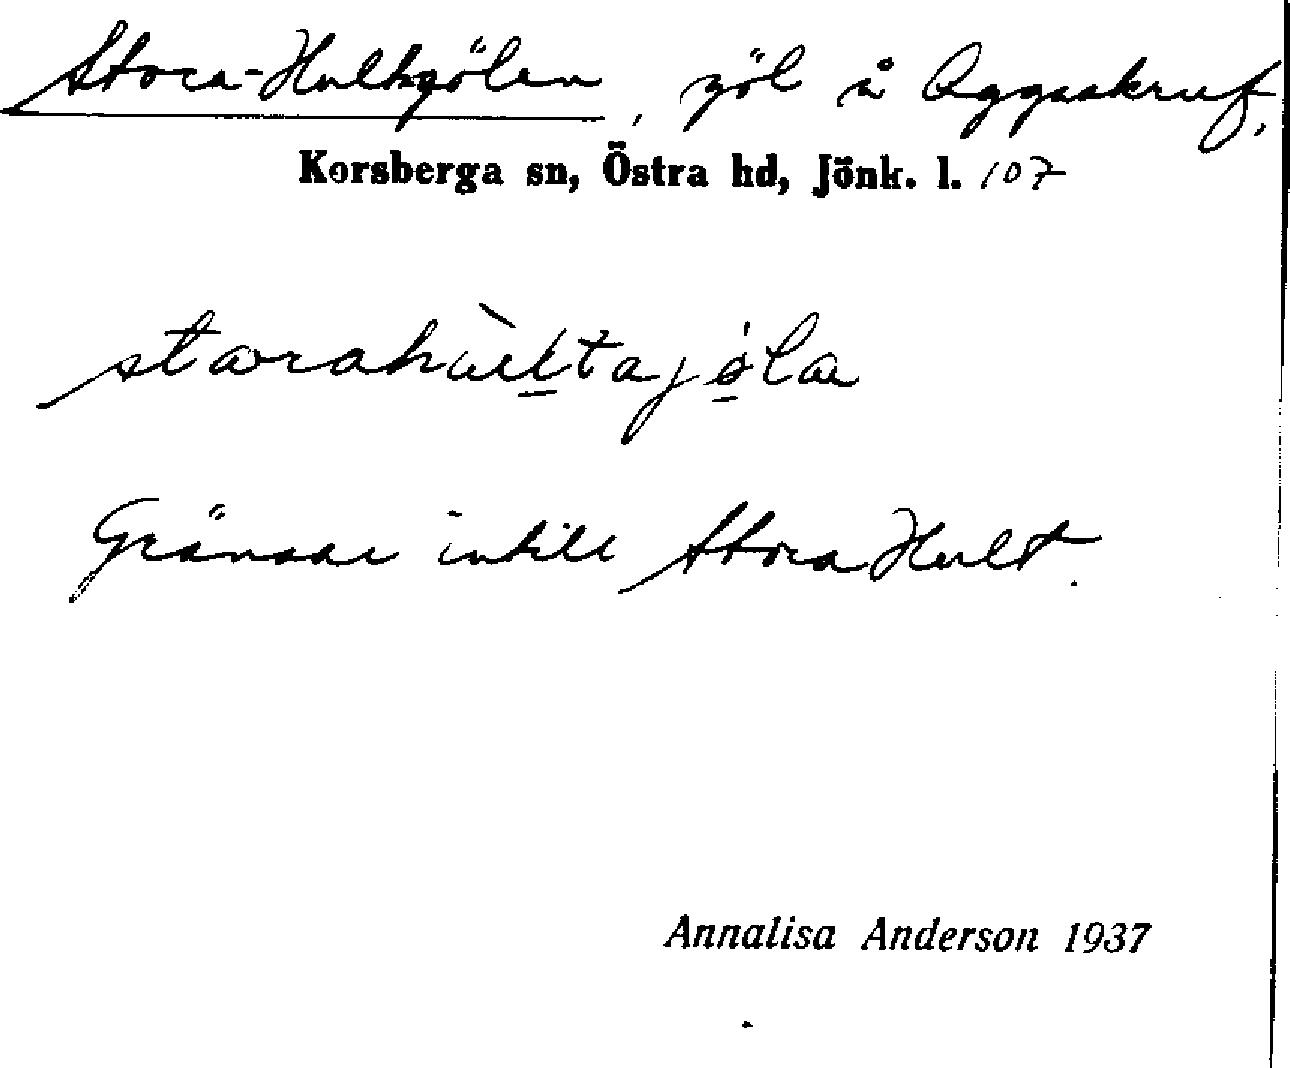 Stora-Hultsgölen, göl å Äggaskruf,
Korsberga sn, Östra hd, Jönk. l. 107
Gränsar intill Stora Hult.
Annalisa Anderson 1937